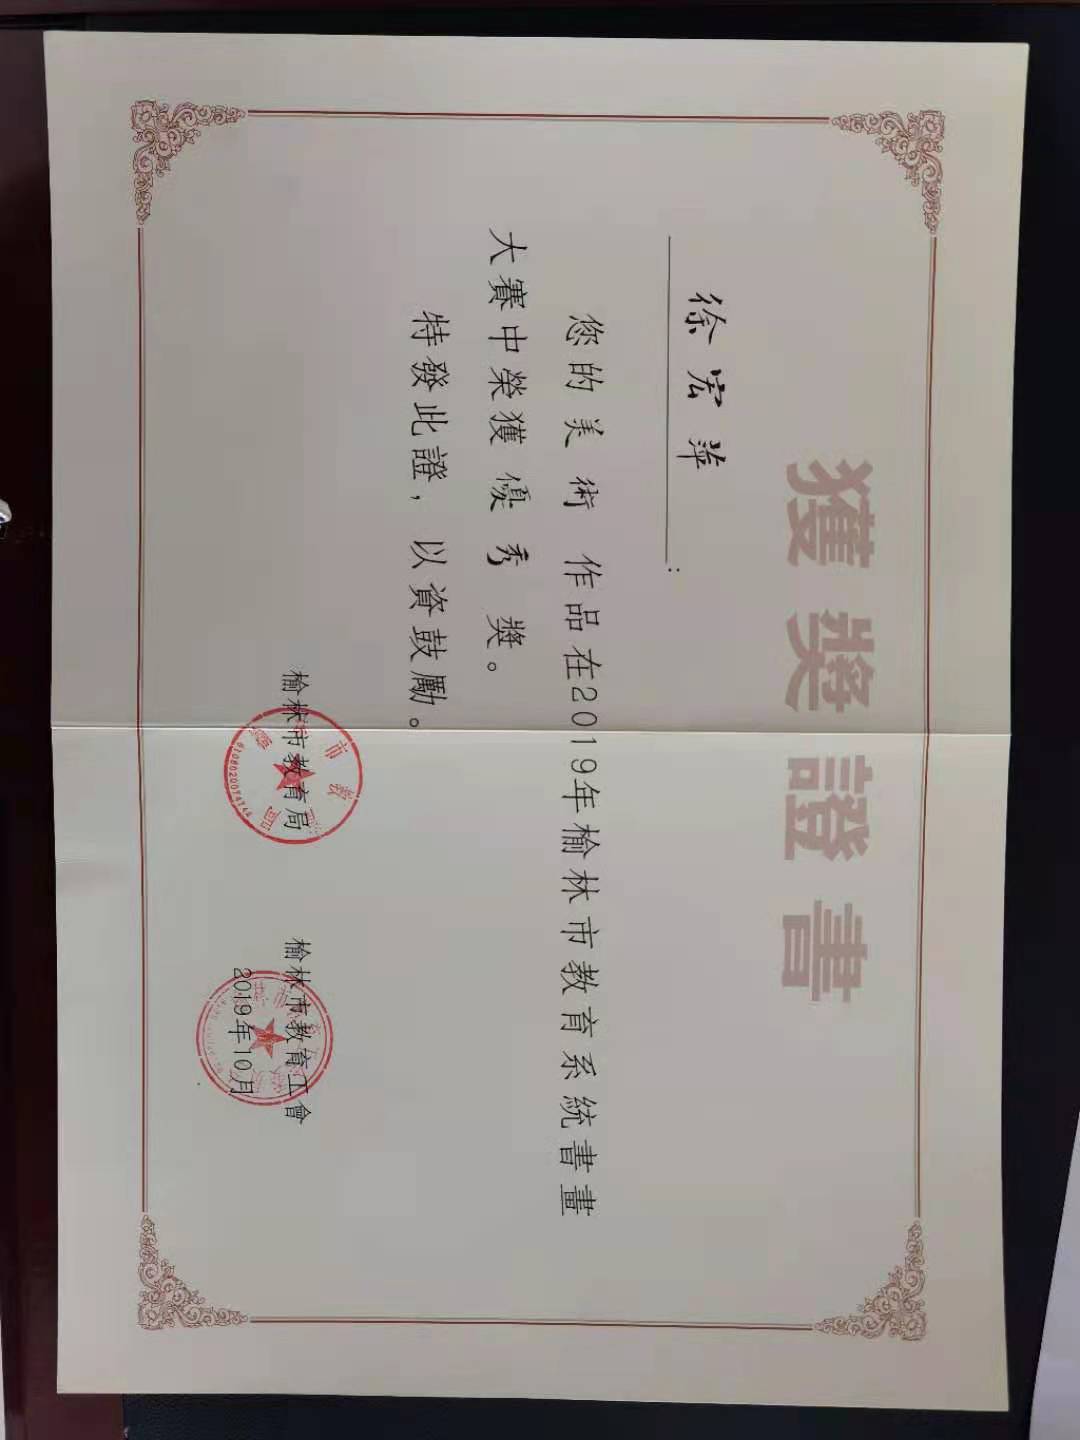 獲獎證書
徐宏萍：
您的美術作品在2019年榆林市教育系統書畫
大賽中榮獲優秀獎。
特發此證，以資鼓勵。
榆林市教育局 榆林市教育工會
2019年10月